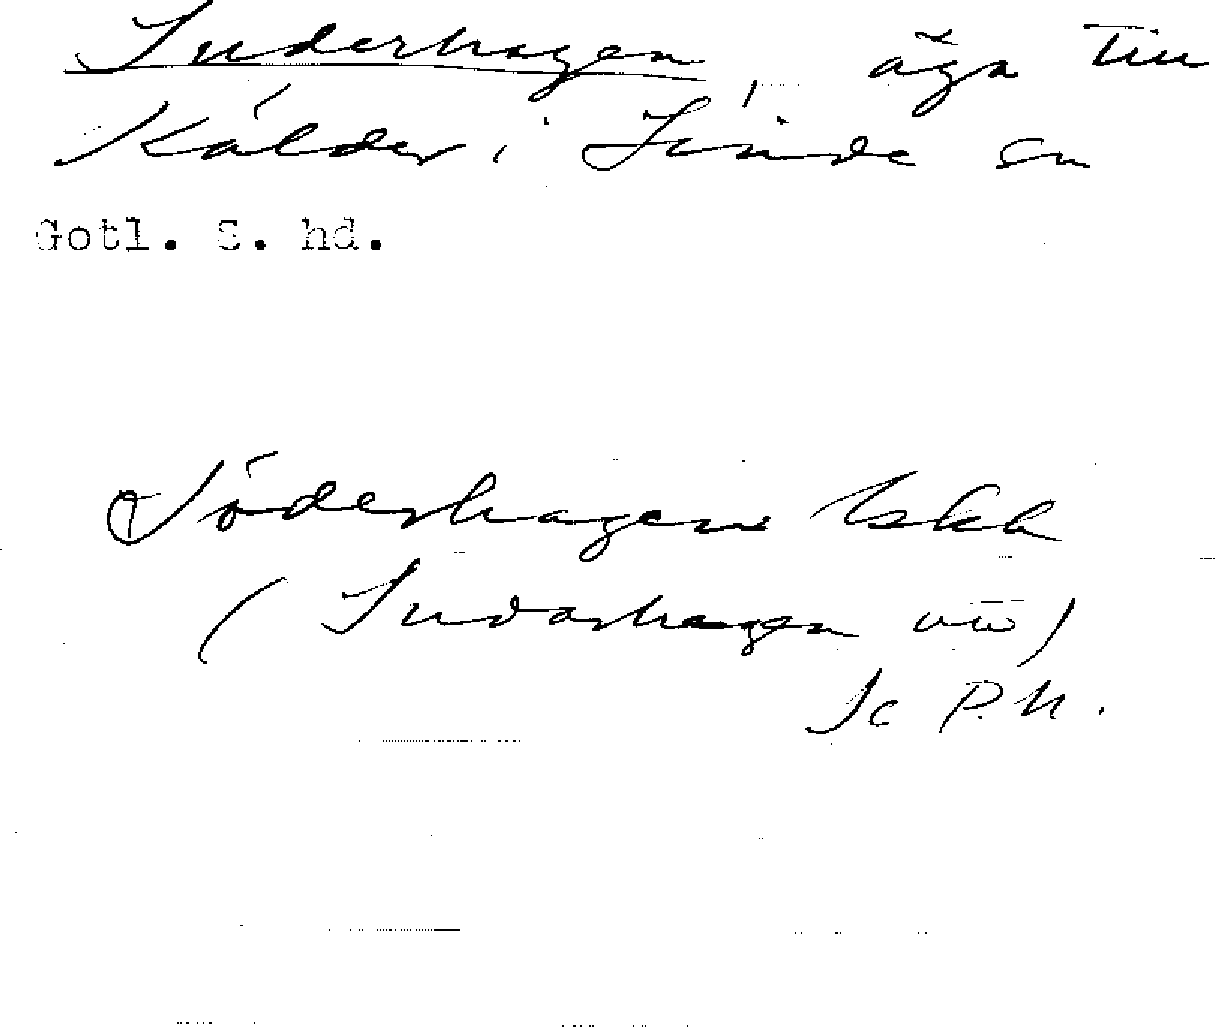 Suderhagen, äga till
Kälder i Linde sn
Gotl. S. hd.
Söderhagen
(Suderhagen
P.N.